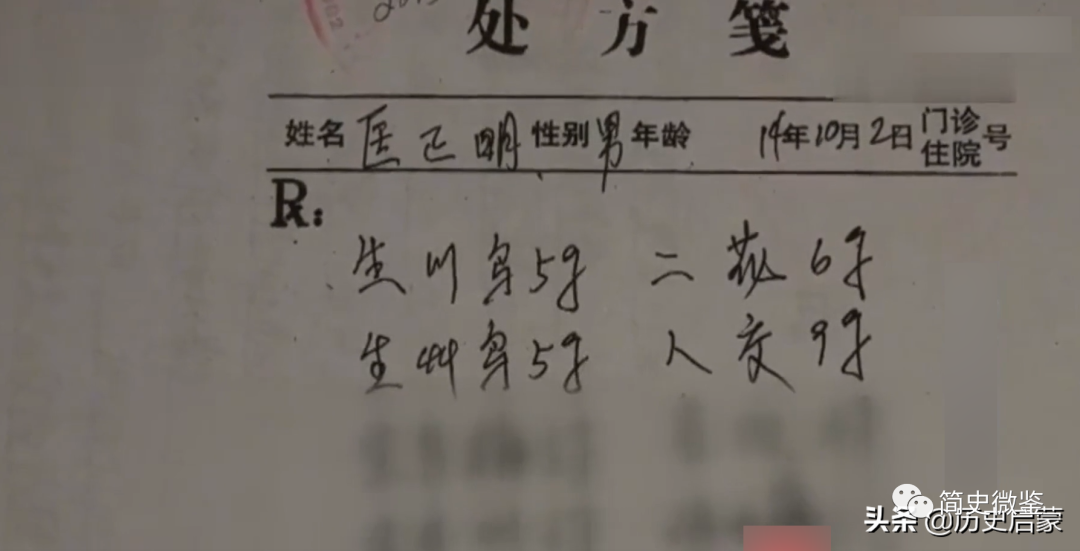 处方笺
姓名 匡正明 性别 男 年龄 14年10月2日 门诊 住院 号
R:
生川乌5g 二花6g
生艸乌5g 人交9g
简史微鉴
头条 @历史启蒙